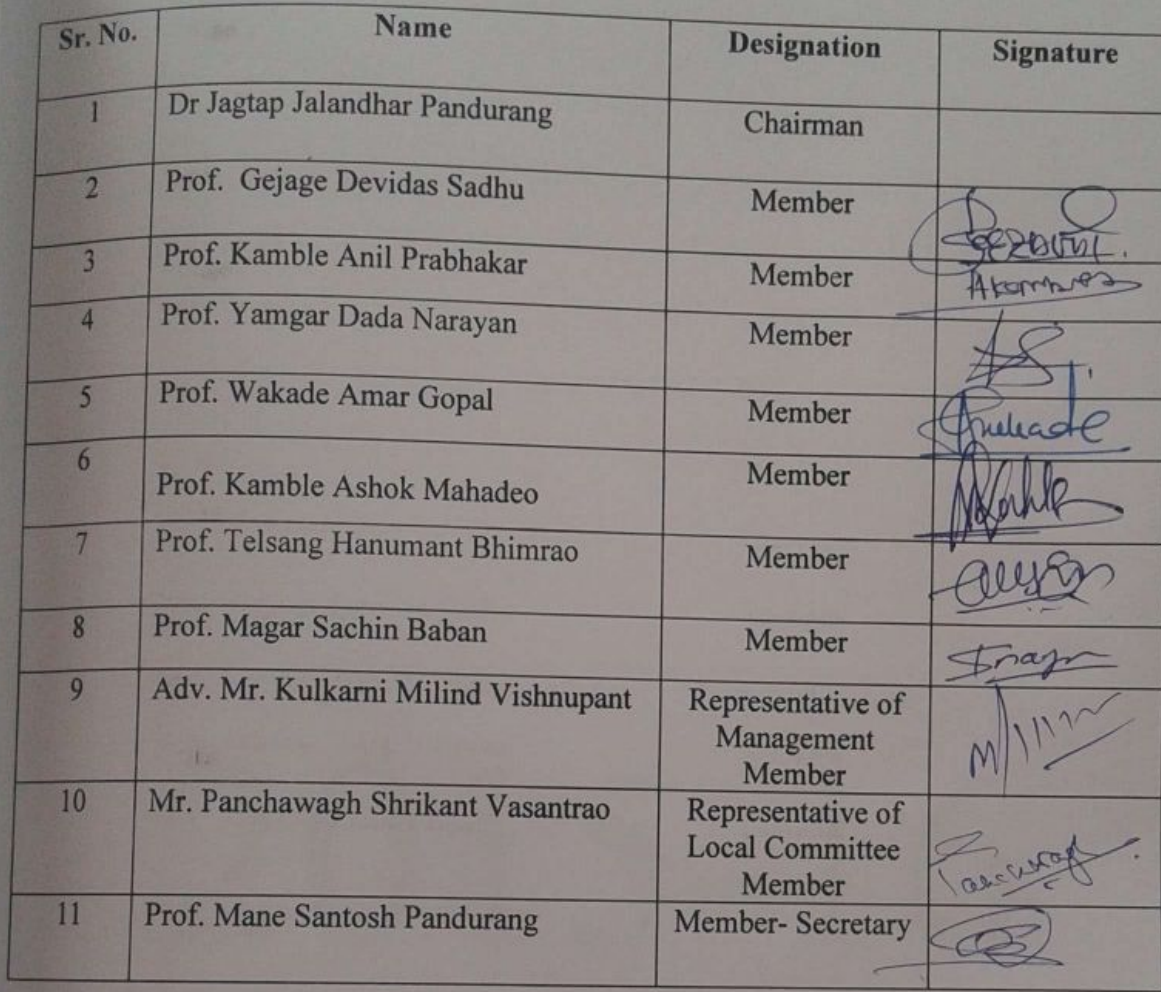 Sr. No. Name Designation Signature
1 Dr Jagtap Jalandhar Pandurang Chairman
2 Prof. Gejage Devidas Sadhu Member
3 Prof. Kamble Anil Prabhakar Member
4 Prof. Yamgar Dada Narayan Member
5 Prof. Wakade Amar Gopal Member
6 Prof. Kamble Ashok Mahadeo Member
7 Prof. Telsang Hanumant Bhimrao Member
8 Prof. Magar Sachin Baban Member
9 Adv. Mr. Kulkarni Milind Vishnupant Representative of
Management
Member
10 Mr. Panchawagh Shrikant Vasantrao Representative of
Local Committee
Member
11 Prof. Mane Santosh Pandurang Member- Secretary